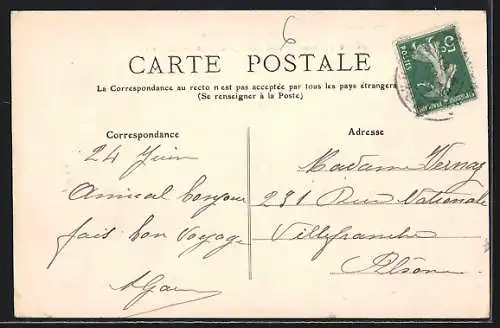 6
CARTE POSTALE
La Correspondance au recto n'est pas acceptée par tous les pays étrangers
(Se renseigner à la Poste)
Correspondance
Adresse
24 Juin
Amical bonjour
fais bon voyage
Madame Vernay
291 Rue Nationale
Villefranche
Rhône
5
POSTES